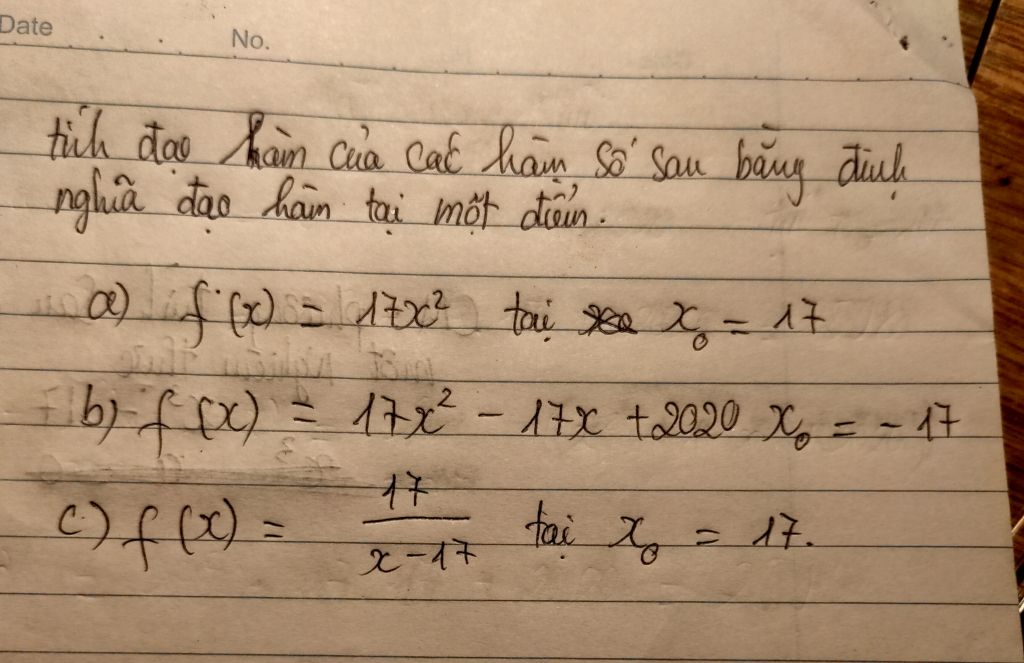 Date . . . No.
tính đạo hàm của các hàm số sau bằng định
nghĩa đạo hàm tại một điểm.
a) f(x) = 17x² tại x₀ = 17
b) f(x) = 17x² - 17x + 2020 x₀ = -17
c) f(x) = 17/(x-17) tại x₀ = 17.